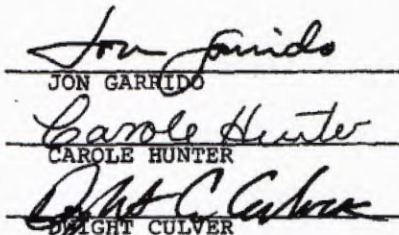 Jon Garrido
JON GARRIDO
Carole Hunter
CAROLE HUNTER
Dwight C. Culver
DWIGHT CULVER